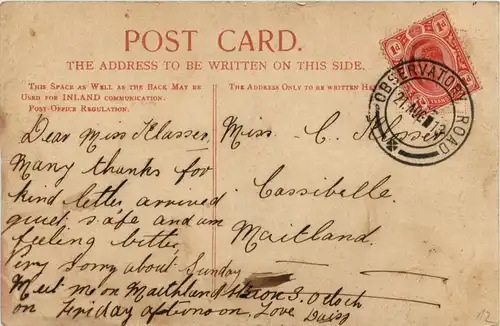 POST CARD.
THE ADDRESS TO BE WRITTEN ON THIS SIDE.
THIS SPACE AS WELL AS THE BACK MAY BE
USED FOR INLAND COMMUNICATION.
POST-OFFICE REGULATION.
THE ADDRESS ONLY TO BE WRITTEN HE
1d 1d
OBSERVATORY ROAD
Dear Miss Klasser,
Many thanks for
kind letter, arrived
quiet safe and am
feeling better,
Very Sorry about Sunday
Meet me on Maithland 3. Oclock
on Friday afternoon, Love
Miss. C.
Cassibelle.
Maitland.
12